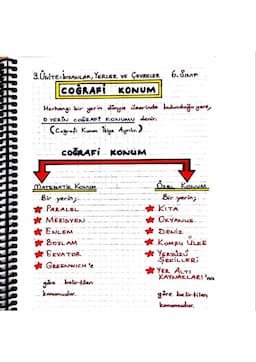 3. ÜNİTE: İNSANLAR, YERLER VE ÇEVRELER 6. SINIF
COĞRAFİ KONUM
Herhangi bir yerin dünya üzerinde bulunduğu yere,
O YERİN COĞRAFİ KONUMU denir.
(Coğrafi Konum İkiye Ayrılır.)
COĞRAFİ KONUM
MATEMATİK KONUM
Bir yerin;
PARALEL
MERİDYEN
ENLEM
BOYLAM
EKVATOR
GREENWICH'e
göre belirtilen
konumudur.
ÖZEL KONUM
Bir yerin;
KITA
OKYANUS
DENİZ
KOMŞU ÜLKE
YERYÜZÜ
ŞEKİLLERİ
YER ALTI
KAYNAKLARI'na
göre belirtilen
konumudur.